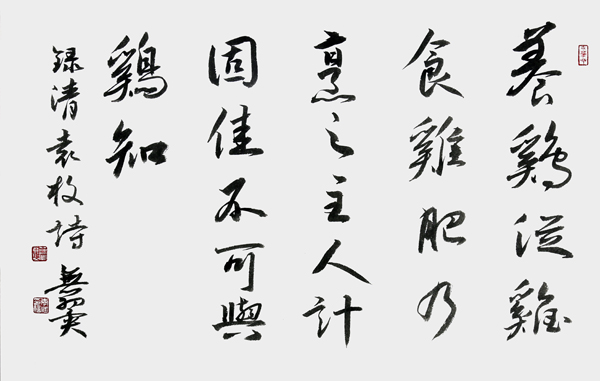 養鷄從雞
食雞肥乃
烹之主人計
固佳不可與
鷄知
録清袁枚詩